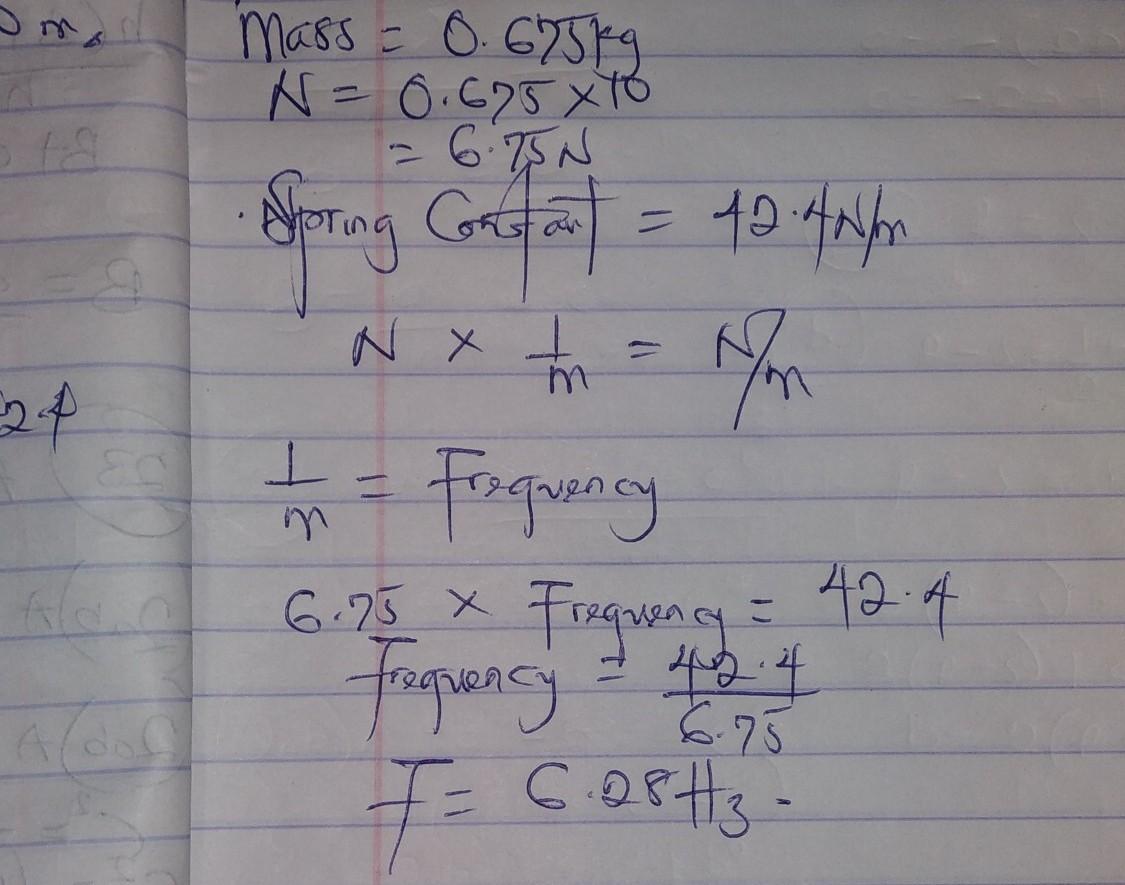 0 m.
Mass = 0.675kg
N = 0.675 × 10
= 6.75N
Spring Constant = 42.4N/m
N × 1/m = N/m
24
1/m = Frequency
6.75 × Frequency = 42.4
frequency = 42.4/6.75
F = 6.28Hz.